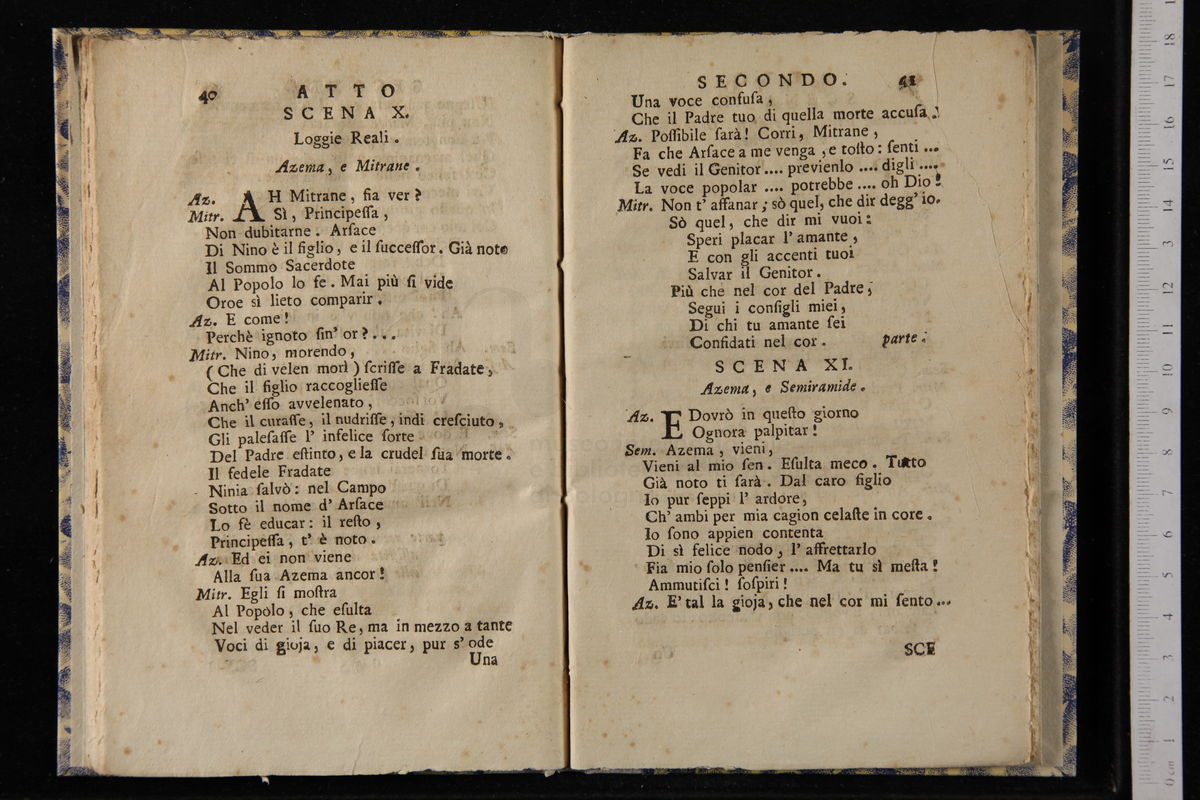 40 ATTO
SCENA X.
Loggie Reali.
Azema, e Mitrane.
Az. AH Mitrane, fia ver?
Mitr. Sì, Principeſſa,
Non dubitarne. Arſace
Di Nino è il figlio, e il ſucceſſor. Già noto
Il Sommo Sacerdote
Al Popolo lo fe. Mai più ſi vide
Oroe sì lieto comparir.
Az. E come!
Perchè ignoto ſin' or?...
Mitr. Nino, morendo,
(Che di velen morì) ſcriſſe a Fradate,
Che il figlio raccoglieſſe
Anch' eſſo avvelenato,
Che il curaſſe, il nudriſſe, indi creſciuto,
Gli paleſaſſe l' infelice ſorte
Del Padre eſtinto, e la crudel ſua morte.
Il fedele Fradate
Ninia ſalvò: nel Campo
Sotto il nome d' Arſace
Lo fè educar: il reſto,
Principeſſa, t' è noto.
Az. Ed ei non viene
Alla ſua Azema ancor!
Mitr. Egli ſi moſtra
Al Popolo, che eſulta
Nel veder il ſuo Re, ma in mezzo a tante
Voci di gioja, e di piacer, pur s' ode
Una
SECONDO. 41
Una voce confuſa,
Che il Padre tuo di quella morte accuſa.
Az. Poſſibile ſarà! Corri, Mitrane,
Fa che Arſace a me venga, e toſto: ſenti...
Se vedi il Genitor.... previenlo.... digli....
La voce popolar.... potrebbe.... oh Dio!
Mitr. Non t' affanar; sò quel, che dir degg' io.
Sò quel, che dir mi vuoi:
Speri placar l' amante,
E con gli accenti tuoi
Salvar il Genitor.
Più che nel cor del Padre,
Segui i conſigli miei,
Di chi tu amante ſei
Confidati nel cor. parte.
SCENA XI.
Azema, e Semiramide.
Az. E Dovrò in queſto giorno
Ognora palpitar!
Sem. Azema, vieni,
Vieni al mio ſen. Eſulta meco. Tutto
Già noto ti ſarà. Dal caro figlio
Io pur ſeppi l' ardore,
Ch' ambi per mia cagion celaſte in core.
Io ſono appien contenta
Di sì felice nodo, l' affrettarlo
Fia mio ſolo penſier.... Ma tu sì meſta!
Ammutiſci! ſoſpiri!
Az. E' tal la gioja, che nel cor mi ſento...
SCE